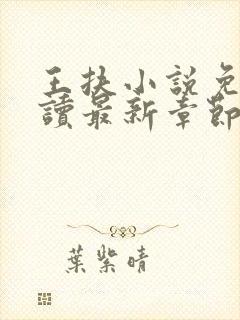 王抉小說免
讀最新章節
葉紫晴